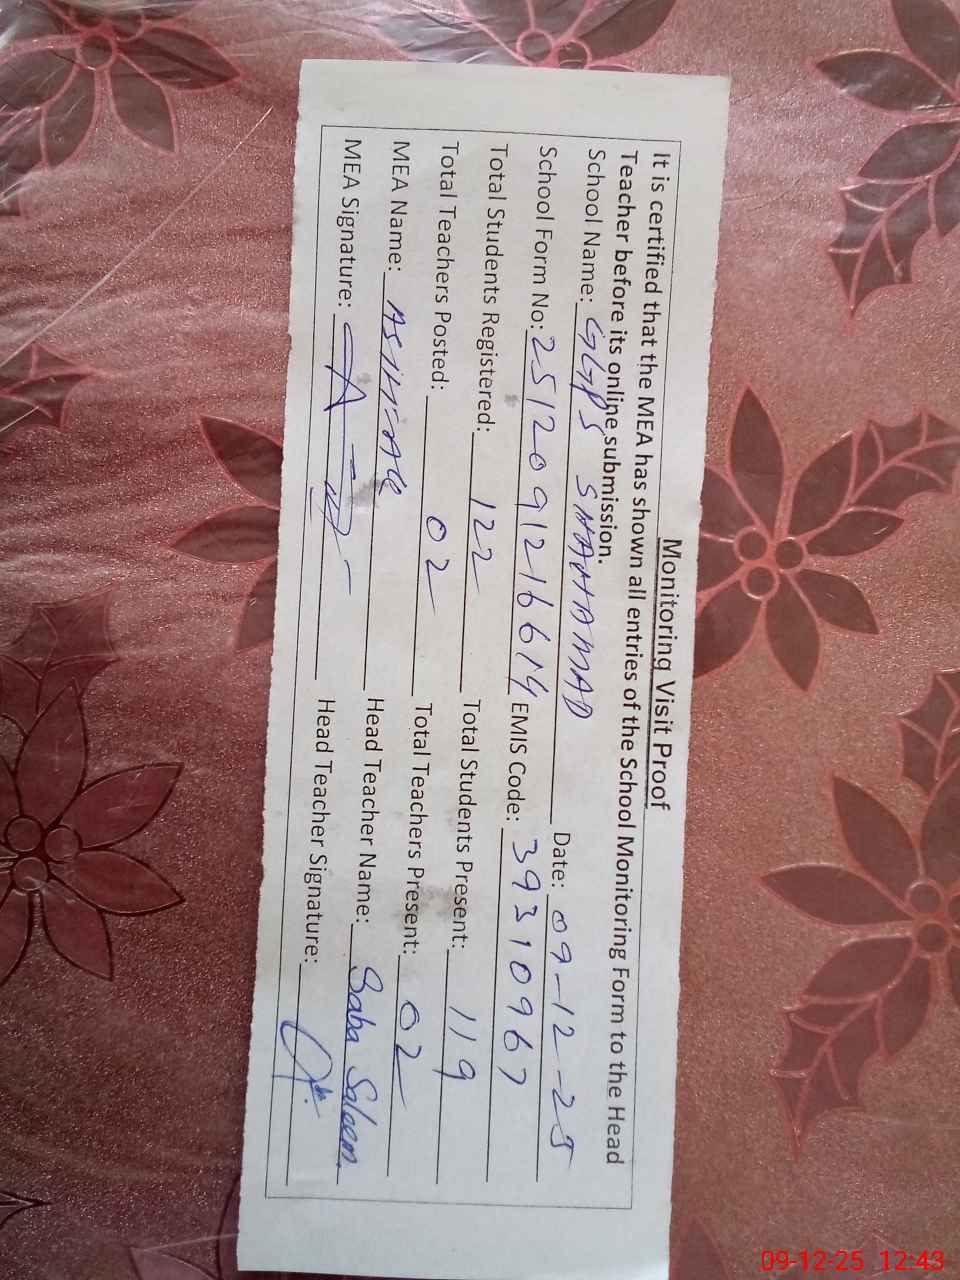 Monitoring Visit Proof
It is certified that the MEA has shown all entries of the School Monitoring Form to the Head
Teacher before its online submission.
School Name: GGPS SHAHAMAD Date: 09-12-25
School Form No: 2512091216614 EMIS Code: 39310967
Total Students Registered: 122 Total Students Present: 119
Total Teachers Posted: 02 Total Teachers Present: 02
MEA Name: Head Teacher Name: Saba Saleem.
MEA Signature: Head Teacher Signature:
09-12-25 12:43